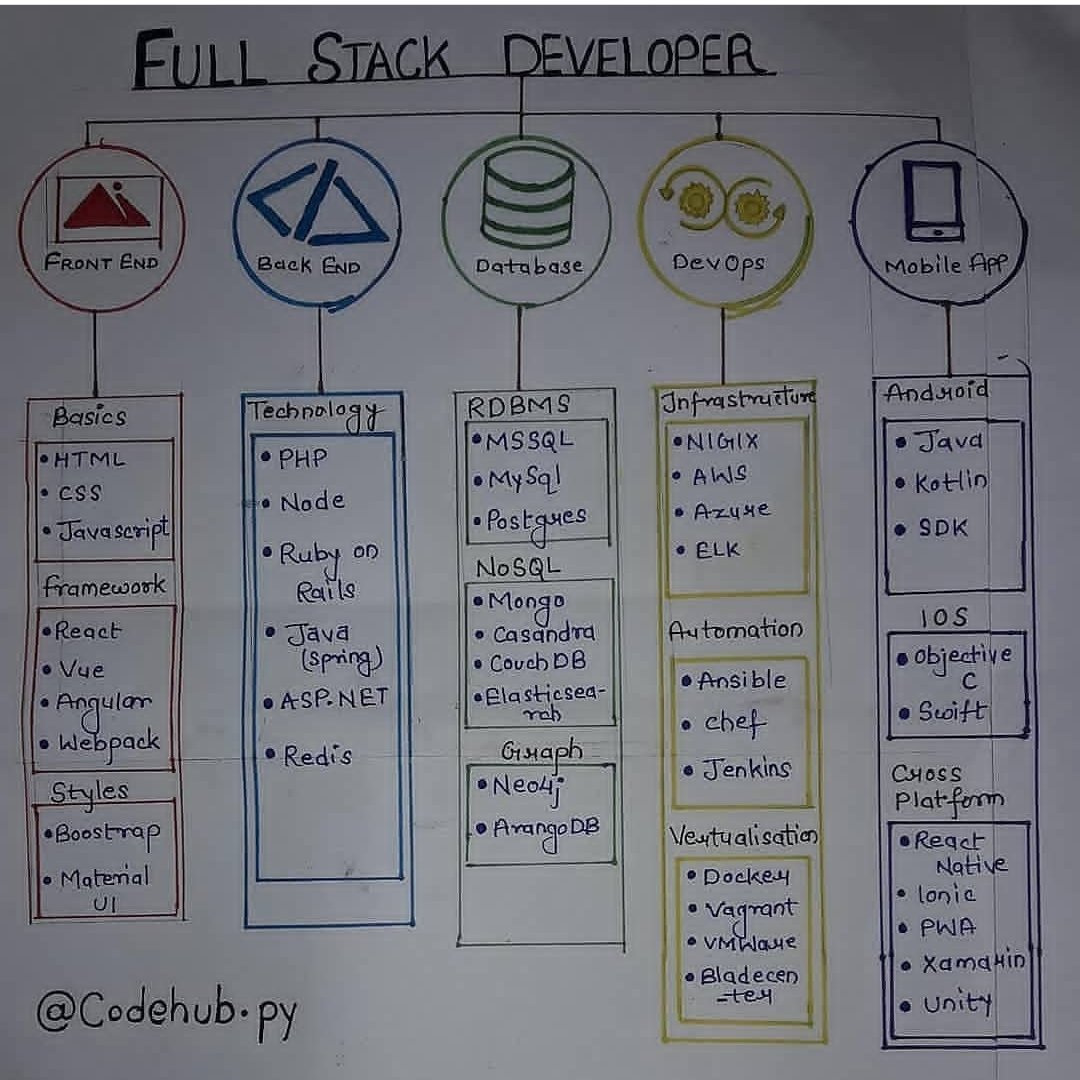 FULL STACK DEVELOPER
FRONT END
BACK END
Database
DevOps
Mobile App
Basics
• HTML
• CSS
• Javascript
framework
• React
• Vue
• Angular
• Webpack
Styles
• Boostrap
• Material
UI
Technology
• PHP
• Node
• Ruby on
Rails
• Java
(spring)
• ASP.NET
• Redis
RDBMS
• MSSQL
• MySql
• Postgres
NoSQL
• Mongo
• Casandra
• Couch DB
• Elasticsea-
rch
Graph
• Neo4j
• Arango DB
Infrastructure
• NIGIX
• AWS
• Azure
• ELK
Automation
• Ansible
• chef
• Jenkins
Vertualisation
• Docker
• Vagrant
• VMWare
• Bladecen
-ter
Android
• Java
• Kotlin
• SDK
IOS
• Objective
C
• Swift
Cross
Platform
• React
Native
• Ionic
• PWA
• Xamarin
• Unity
@Codehub.py